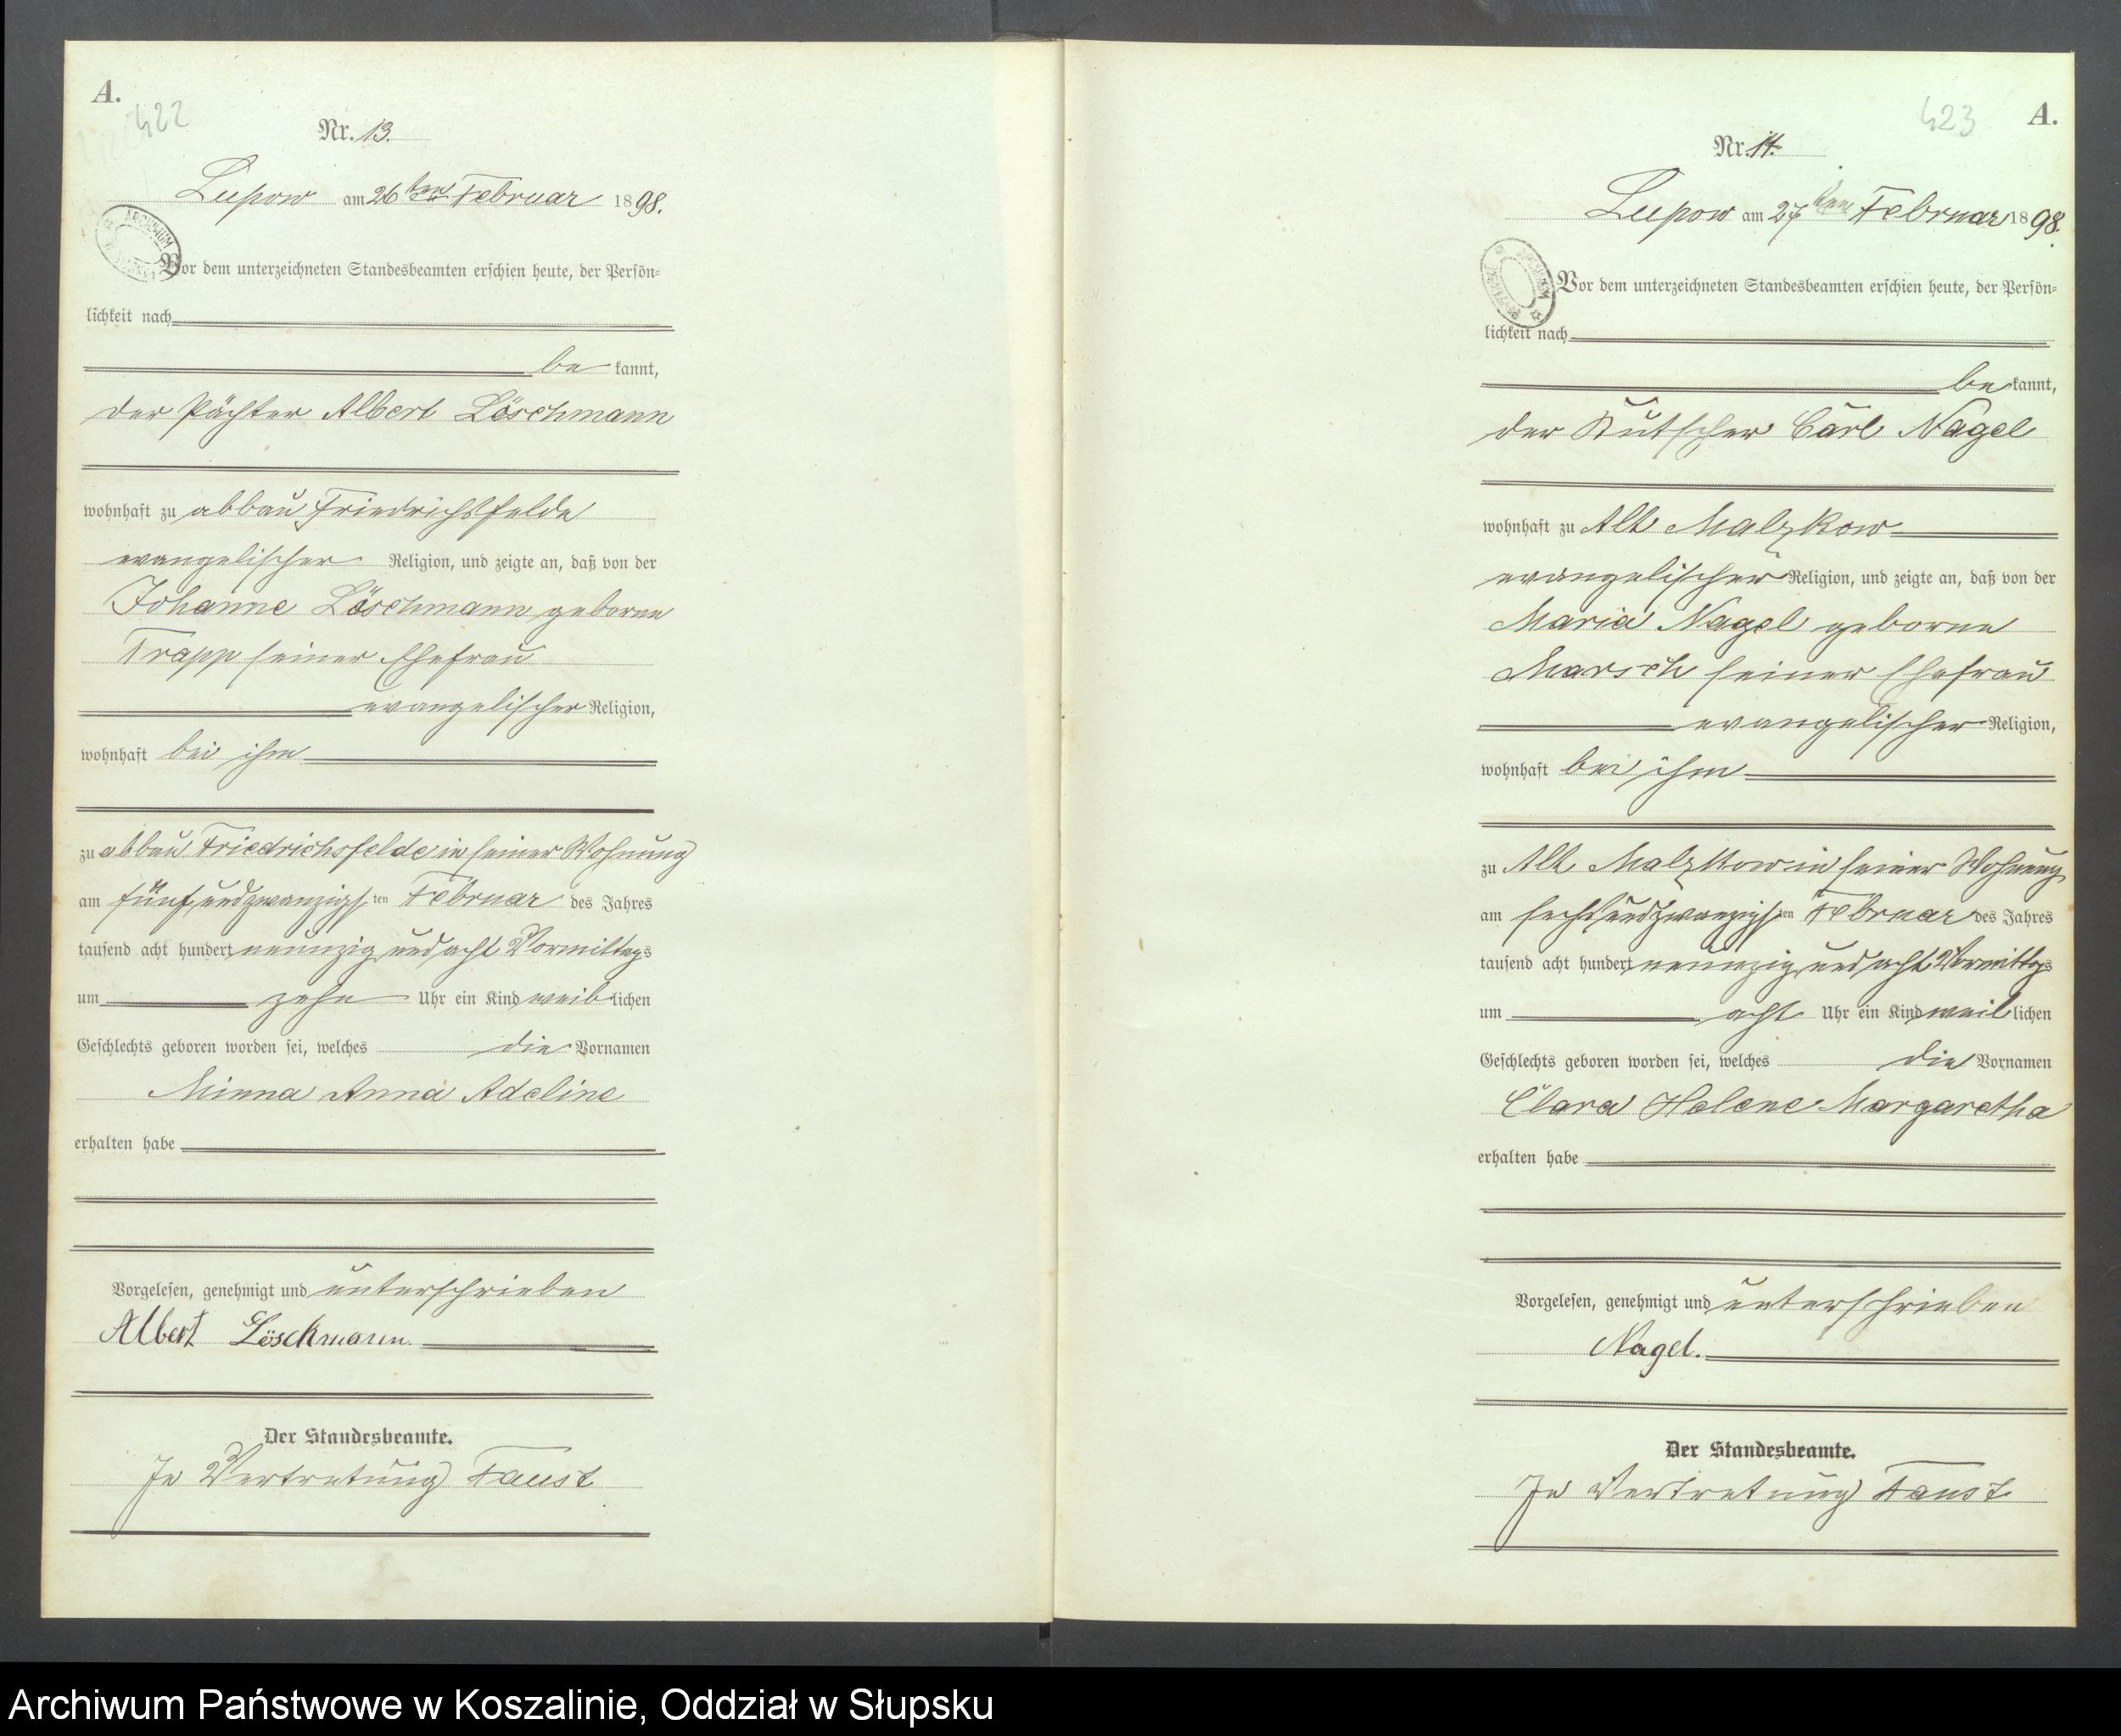 A.
422
Nr. 13.
Lupow am 26ten Februar 1898.
Vor dem unterzeichneten Standesbeamten erschien heute, der Persön-
lichkeit nach
be kannt,
der Pächter Albert Löschmann
wohnhaft zu abbau Friedrichsfelde
evangelischer Religion, und zeigte an, daß von der
Johanne Löschmann geborne
Trapp seiner Ehefrau
evangelischer Religion,
wohnhaft bei ihm
zu abbau Friedrichsfelde in seiner Wohnung
am fünfundzwanzigsten Februar des Jahres
tausend acht hundert neunzig und acht Vormittags
um zehn Uhr ein Kind weiblichen
Geschlechts geboren worden sei, welches die Vornamen
Minna Anna Adeline
erhalten habe
Vorgelesen, genehmigt und unterschrieben
Albert Löschmann.
Der Standesbeamte.
In Vertretung Faust
423
A.
Nr. 14.
Lupow am 27ten Februar 1898.
ARCHIWUM
Vor dem unterzeichneten Standesbeamten erschien heute, der Persön-
lichkeit nach
be kannt,
der Kutscher Carl Nagel
wohnhaft zu Alt Malzkow
evangelischer Religion, und zeigte an, daß von der
Maria Nagel geborne
Marsch seiner Ehefrau
evangelischer Religion,
wohnhaft bei ihm
zu Alt Malzkow in seiner Wohnung
am sechsundzwanzigsten Februar des Jahres
tausend acht hundert neunzig und acht Vormittags
um acht Uhr ein Kind weiblichen
Geschlechts geboren worden sei, welches die Vornamen
Clara Helene Margaretha
erhalten habe
Vorgelesen, genehmigt und unterschrieben
Nagel.
Der Standesbeamte.
In Vertretung Faust
Archiwum Państwowe w Koszalinie, Oddział w Słupsku